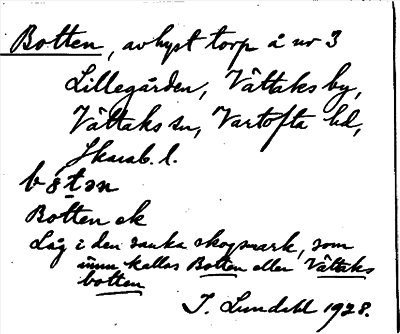 Botten, avhyst torp å nr 3
Lillegården, Vättaks by,
Vättaks sn, Vartofta hd,
Skarab. l.
bötən
Botten ek
Låg i den sanka skogsmark, som
ännu kallas Botten eller Vättaks
botten
I. Lundahl 1928.